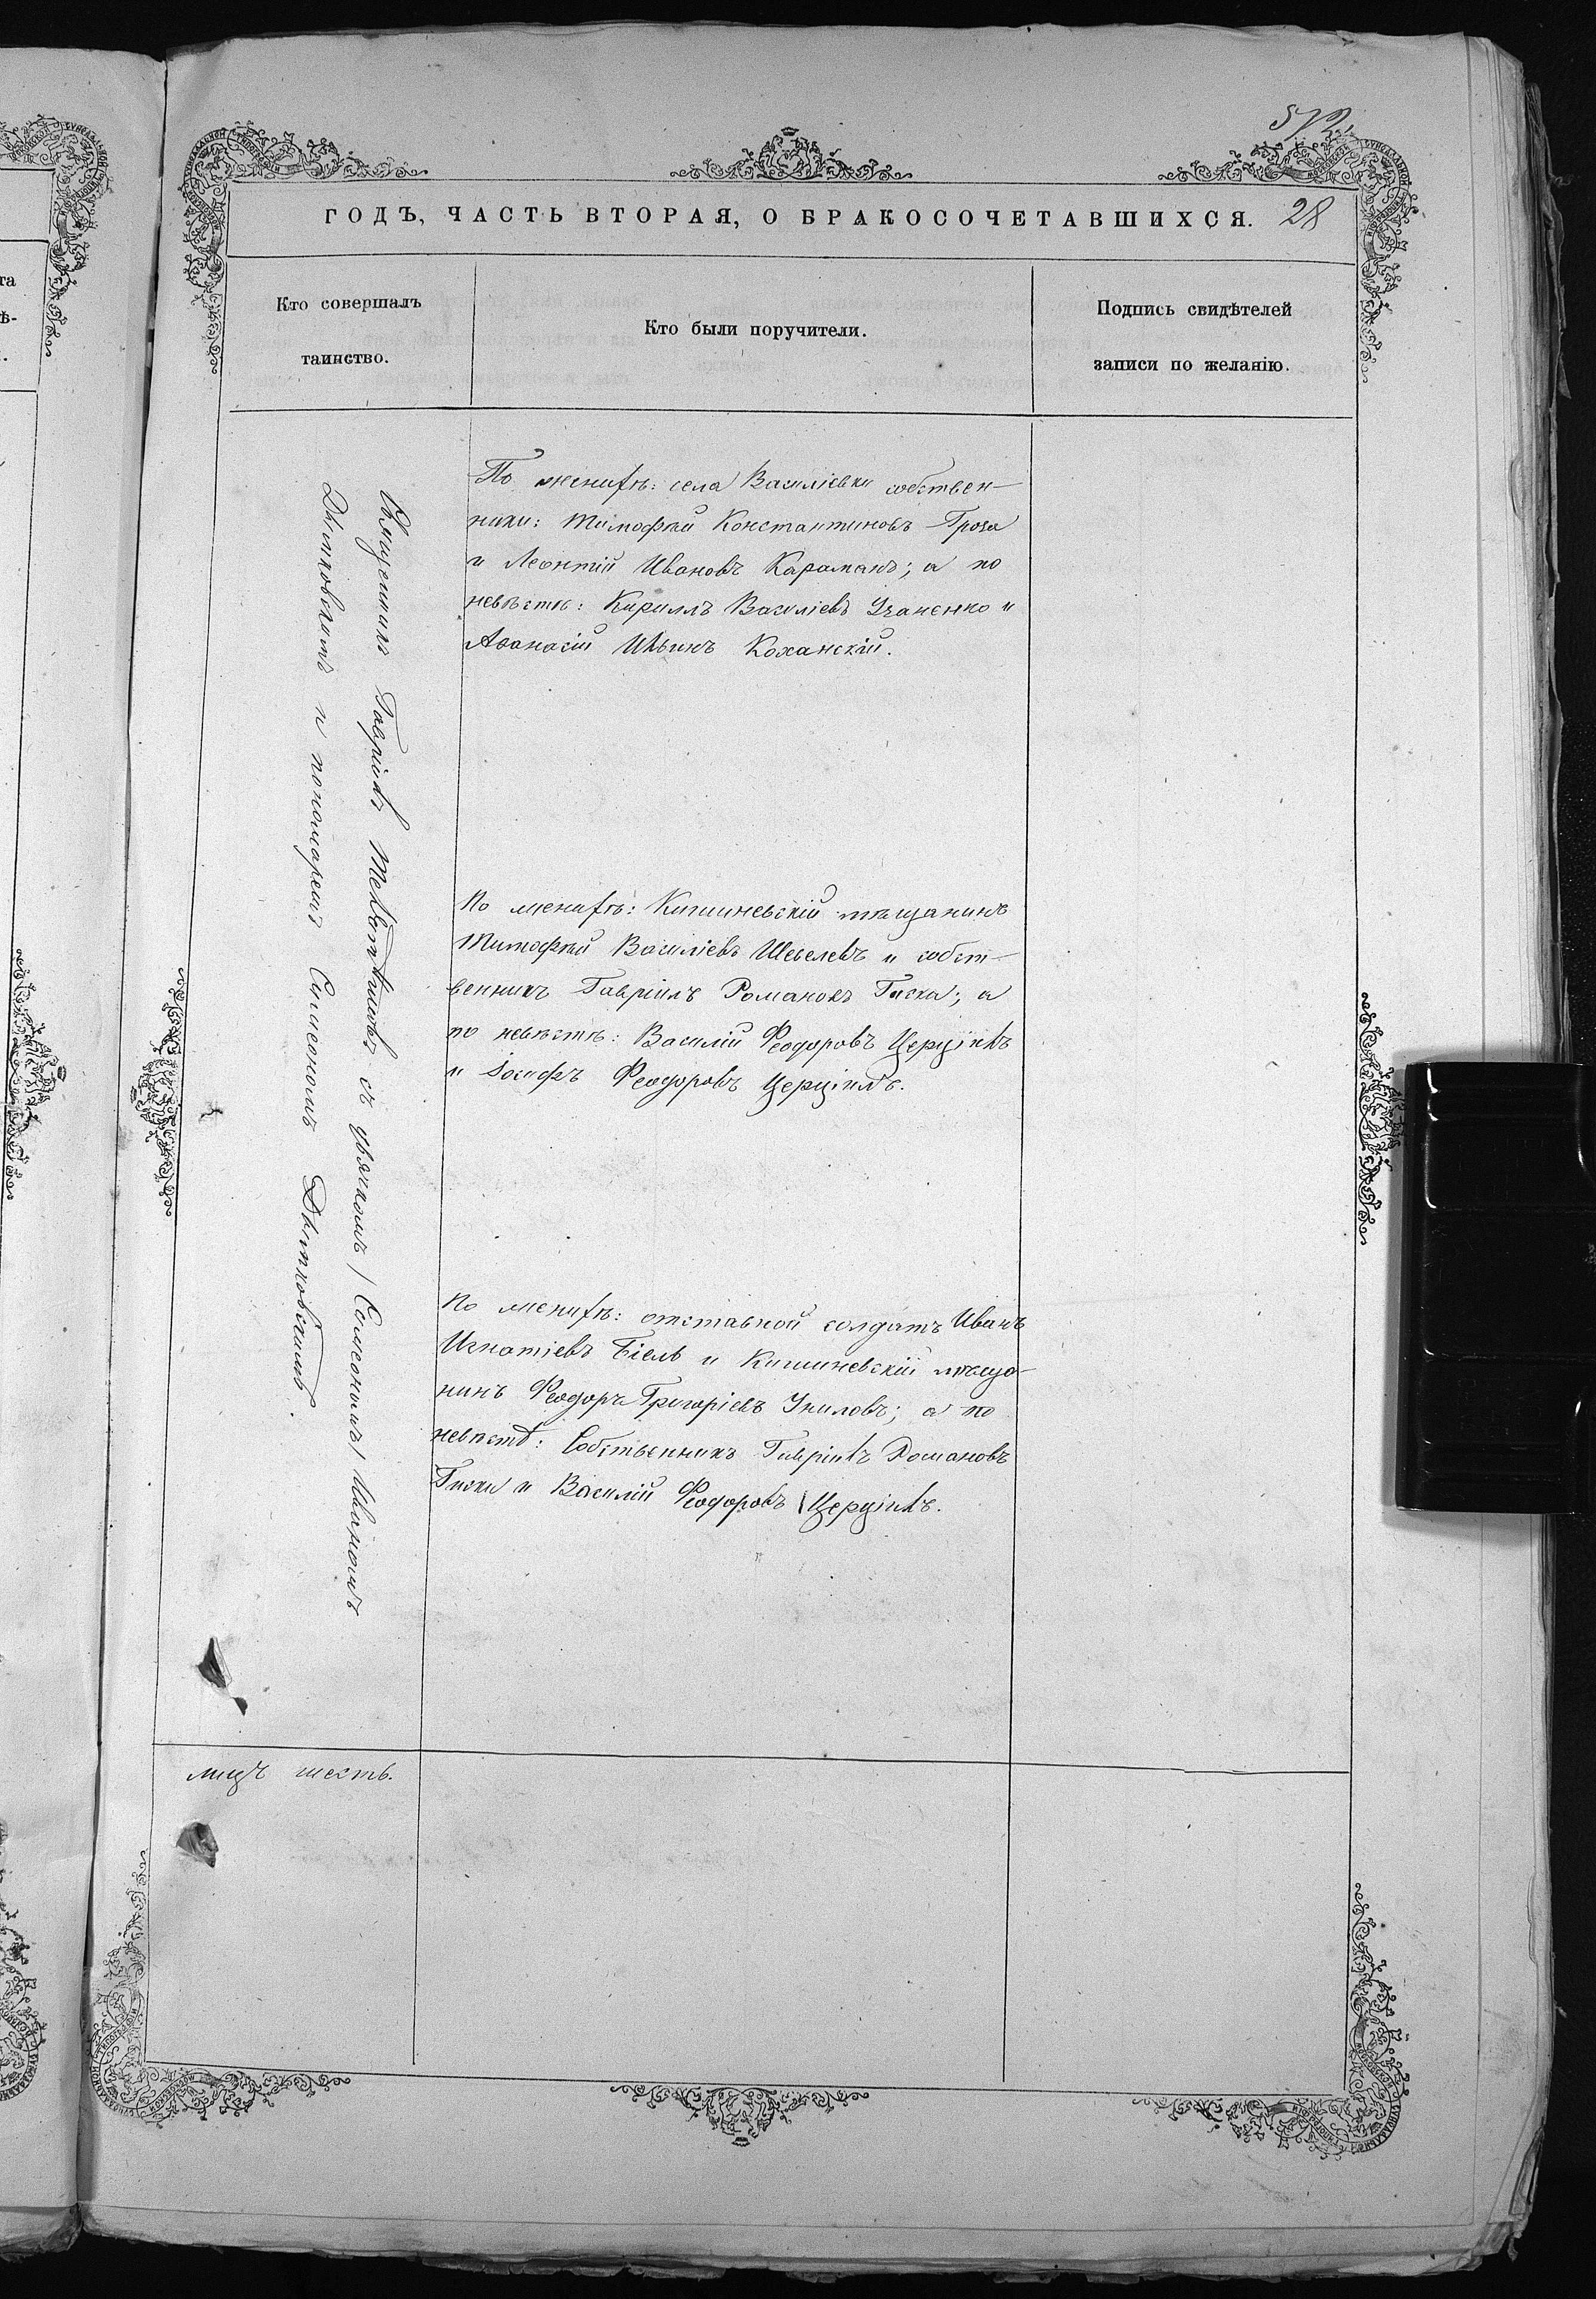 572
ГОДЪ, ЧАСТЬ ВТОРАЯ, О БРАКОСОЧЕТАВШИХСЯ. 28
Кто совершалъ
таинство.
Кто были поручители.
Подпись свидѣтелей
записи по желанію.
Священникъ Гавріилъ съ дьячкомъ Симеономъ Ивановымъ
и пономаремъ Симеономъ
По женихѣ: села Василіевки собствен-
ники: Тимофѣй Константиновъ Гроза
и Леонтій Ивановъ Караманъ; а по
невѣстѣ: Кириллъ Василіевъ и
Аѳанасій Ильинъ Коханскій.
По женихѣ: Кишиневскій мѣщанинъ
Тимофѣй Василіевъ Шевелевъ и собст-
венникъ Гавріилъ Романовъ Гиска; а
по невѣстѣ: Василій Феодоровъ Церціилъ
и Іосифъ Феодоровъ Церціилъ.
По женихѣ: отставной солдатъ Иванъ
Игнатіевъ и Кишиневскій мѣща-
нинъ Феодоръ Григоріевъ; а по
невѣстѣ: Собственникъ Гавріилъ Романовъ
Гиска и Василій Феодоровъ Церціилъ.
лицъ шесть.